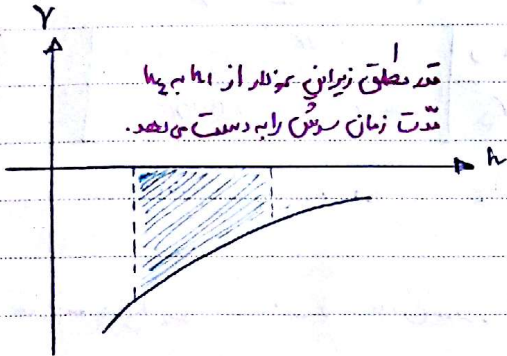 γ
قدر مطلق زیرانی نمودار از h₁ به h₂
مدّت زمان سوزش را به دست می‌دهد.
h